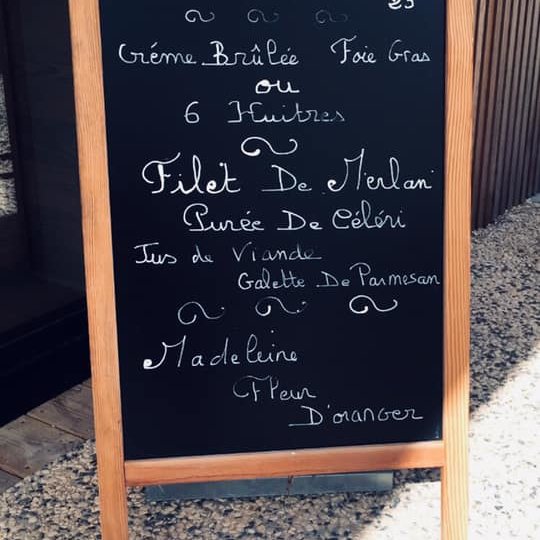 Créme Brûlée Foie Gras
ou
6 Huitres
Filet De Merlan
Purée De Céléri
Jus de Viande
Galette De Parmesan
Madeleine
Fleur
D'oranger